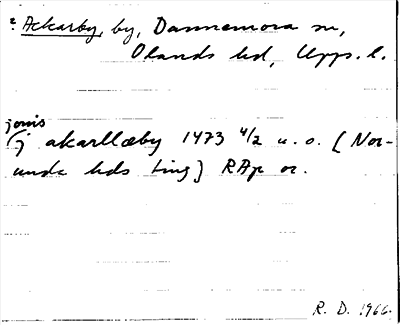 ? Ackarby, by, Dannemora sn,
Olands hd, Upps. l.
jonis
(j akarllæby 1473 4/2 u. o. [Nor-
unda hds ting] RAp or.
R. D. 1966.